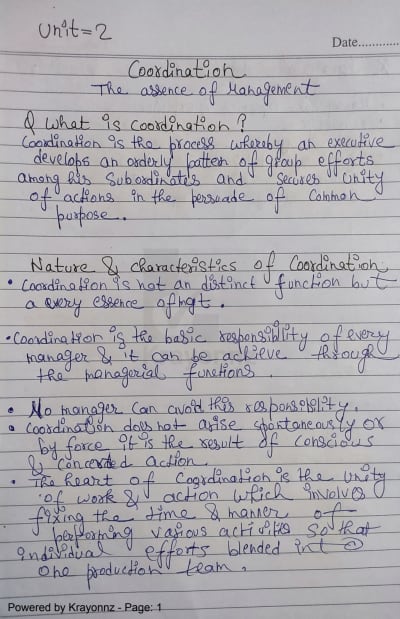 Unit = 2
Date............
Coordination
The assence of Management
Q What is coordination ?
Coordination is the process whereby an executive
develops an orderly pattern of group efforts
among his Subordinates and secures unity
of actions in the persuade of Common
purpose..
Nature & characteristics of Coordination
• Coordination is not an distinct function but
a every essence of mgt.
• Coordination is the basic responsibility of every
manager & it can be achieve through
the managerial functions.
• No manager can avoid this responsibility.
• Coordination does not arise spontaneously or
by force it is the result of conscious
& concerted action.
• The heart of Coordination is the unity
of work & action which involves
fixing the time & manner of
performing various activities so that
individual efforts blended int a
one production team.
Powered by Krayonnz - Page: 1